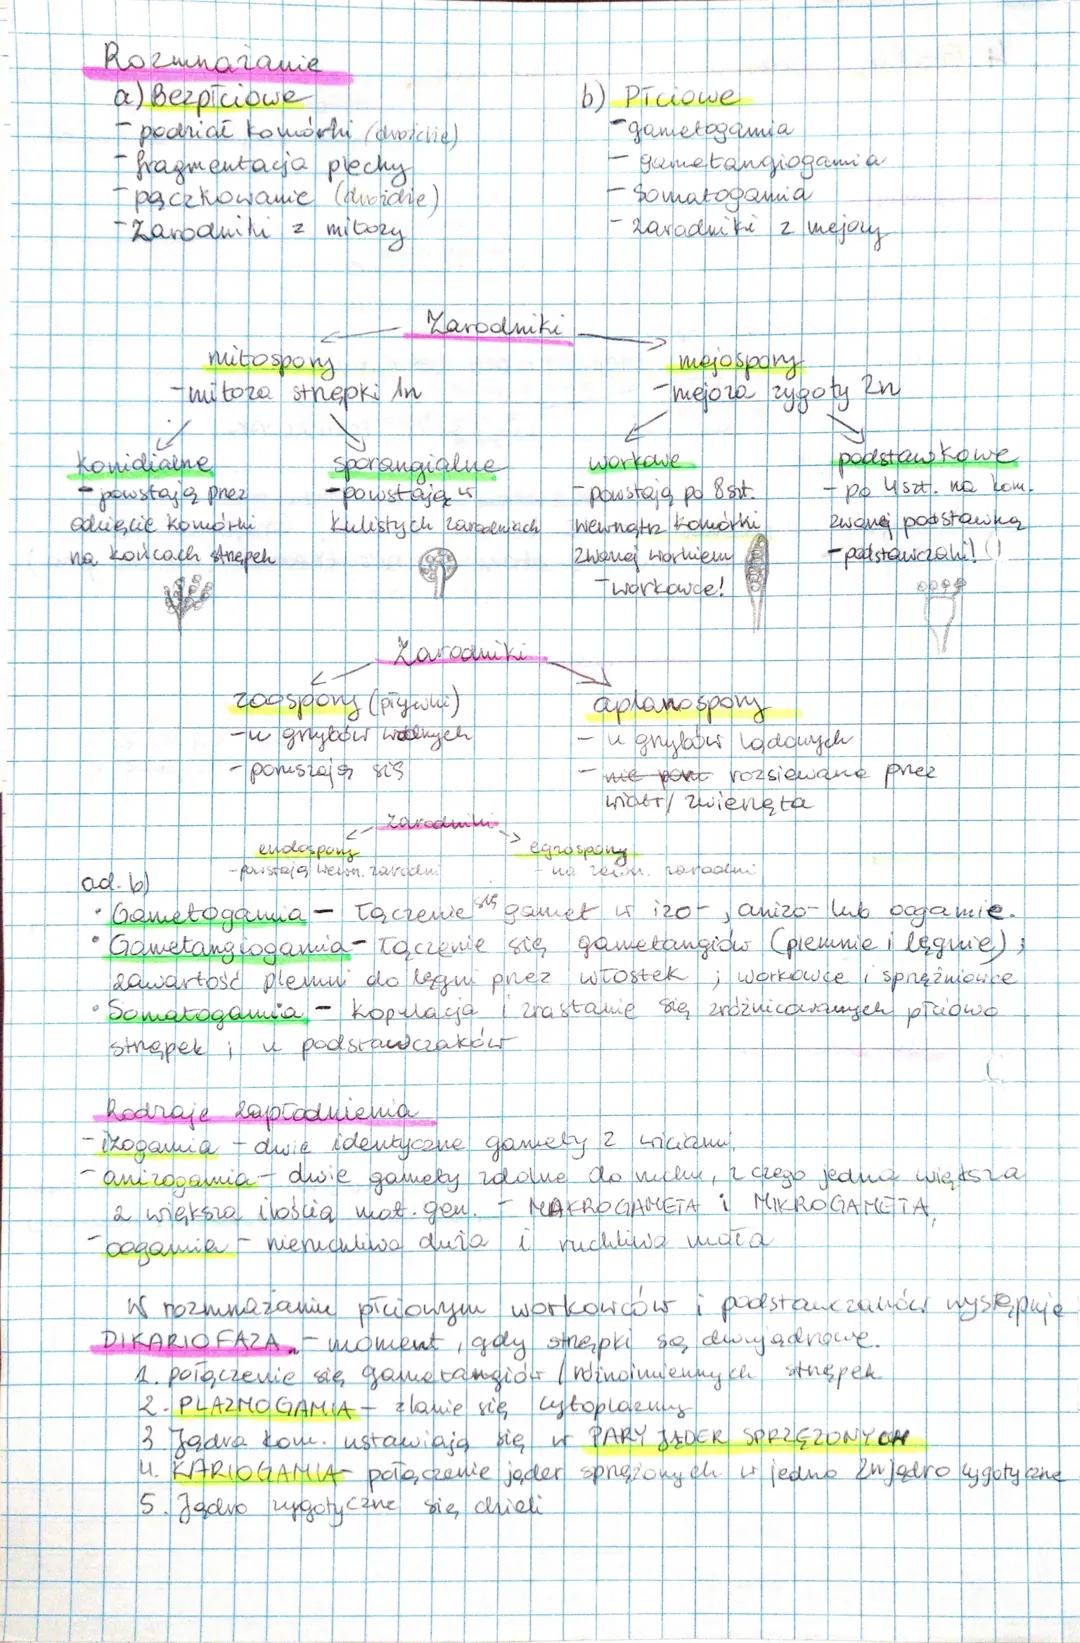 Rozmnażanie
a) Bezpłciowe
- podział komórki (drożdże)
- fragmentacja plechy
- pączkowanie (drożdże)
- Zarodniki z mitozy
b) Płciowe
- gametogamia
- gametangiogamia
- Somatogamia
- zarodniki z mejozy
Zarodniki
mitospory
- mitoza strzępki 1n
mejospory
- mejoza zygoty 2n
konidialne
- powstają przez
odcięcie komórki
na końcach strzępek
sporangialne
- powstają w
kulistych zarodniach
workowe
- powstają po 8 szt.
wewnątrz komórki
zwanej workiem
- workowce!
podstawkowe
- po 4 szt. na kom.
zwanej podstawką
- podstawczaki! (!
Zarodniki
zoospory (pływki)
- u grzybów wodnych
- poruszają się
aplanospory
- u grzybów lądowych
- nie poru rozsiewane przez
wiatr/ zwierzęta
Zarodniki
endospory
- powstają wewn. zarodni
egzospory
- na zewn. zarodni
ad. b)
• Gametogamia - łączenie się gamet w izo-, anizo- lub oogamie.
• Gametangiogamia - łączenie się gametangiów (plemnie i lęgnie) ;
zawartość plemni do lęgni przez włostek ; workowce i sprzężniowce
• Somatogamia - kopulacja i zrastanie się zróżnicowanych płciowo
strzępek ; u podstawczaków
Rodzaje zapłodnienia
- izogamia - dwie identyczne gamety z wiciami,
- anizogamia - dwie gamety zdolne do ruchu, z czego jedna większa
z większą ilością mat. gen. - MAKROGAMETA i MIKROGAMETA,
- oogamia - nieruchliwa duża i ruchliwa mała
W rozmnażaniu płciowym workowców i podstawczaków występuje
DIKARIOFAZA - moment, gdy strzępki są dwujądrowe.
1. połączenie się gametangiów / różnoimiennych strzępek
2. PLAZMOGAMIA - zlanie się cytoplazmy
3. Jądra kom. ustawiają się w PARY JĄDER SPRZĘŻONYCH
4. KARIOGAMIA - połączenie jąder sprzężonych w jedno 2n jądro zygotyczne
5. Jądro zygotyczne się dzieli